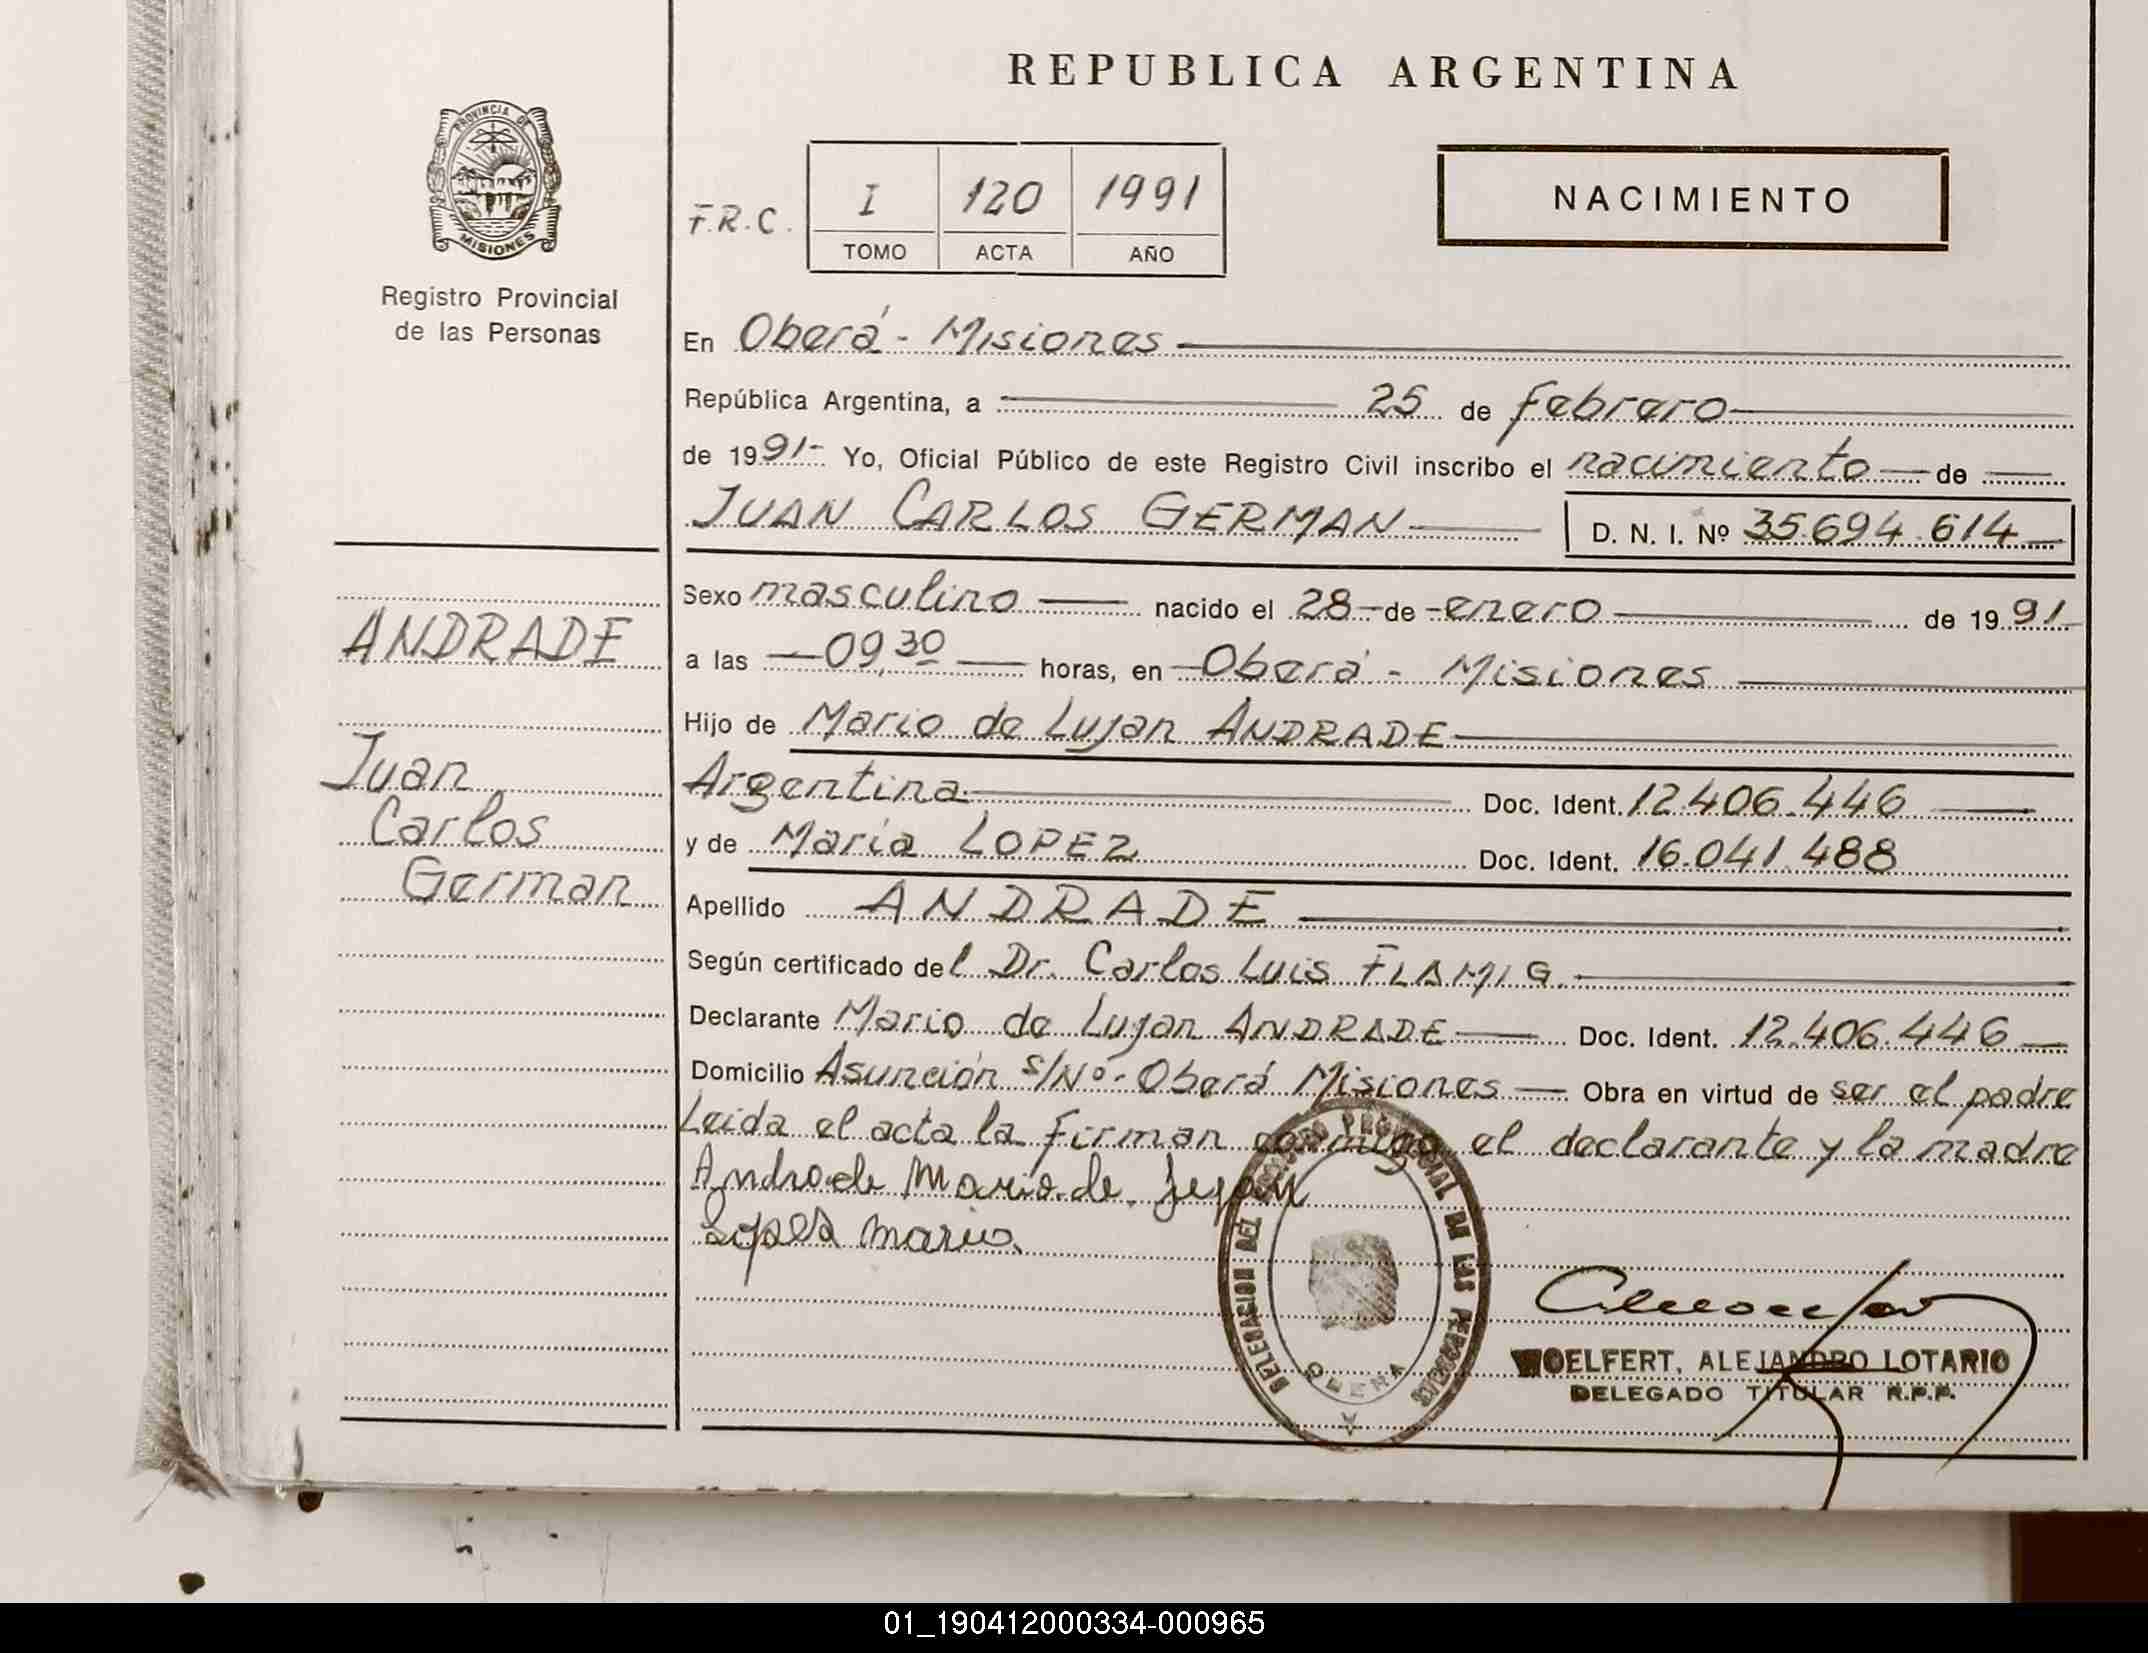 REPUBLICA ARGENTINA
PROVINCIA DE
MISIONES
Registro Provincial
de las Personas
F.R.C.
I 120 1991
TOMO ACTA AÑO
NACIMIENTO
En Oberá - Misiones
República Argentina, a 25 de febrero
de 1991- Yo, Oficial Público de este Registro Civil inscribo el nacimiento de
JUAN CARLOS GERMAN D. N. I. Nº 35.694.614
Sexo masculino nacido el 28 de enero de 1991
a las 09,30 horas, en Oberá - Misiones
Hijo de Mario de Lujan ANDRADE
Argentina Doc. Ident. 12.406.446
y de Maria LOPEZ Doc. Ident. 16.041.488
Apellido ANDRADE
Según certificado del Dr. Carlos Luis FLAMIG.
Declarante Mario de Lujan ANDRADE Doc. Ident. 12.406.446
Domicilio Asunción s/Nº - Oberá Misiones Obra en virtud de ser el padre
Leida el acta la firman conmigo el declarante y la madre
Andrade Mario de Lujan
Lopes Maria
ANDRADE
Juan
Carlos
German
DELEGACION DEL REGISTRO PROVINCIAL DE LAS PERSONAS
OBERA
WOELFERT, ALEJANDRO LOTARIO
DELEGADO TITULAR R.P.P.
01_190412000334-000965